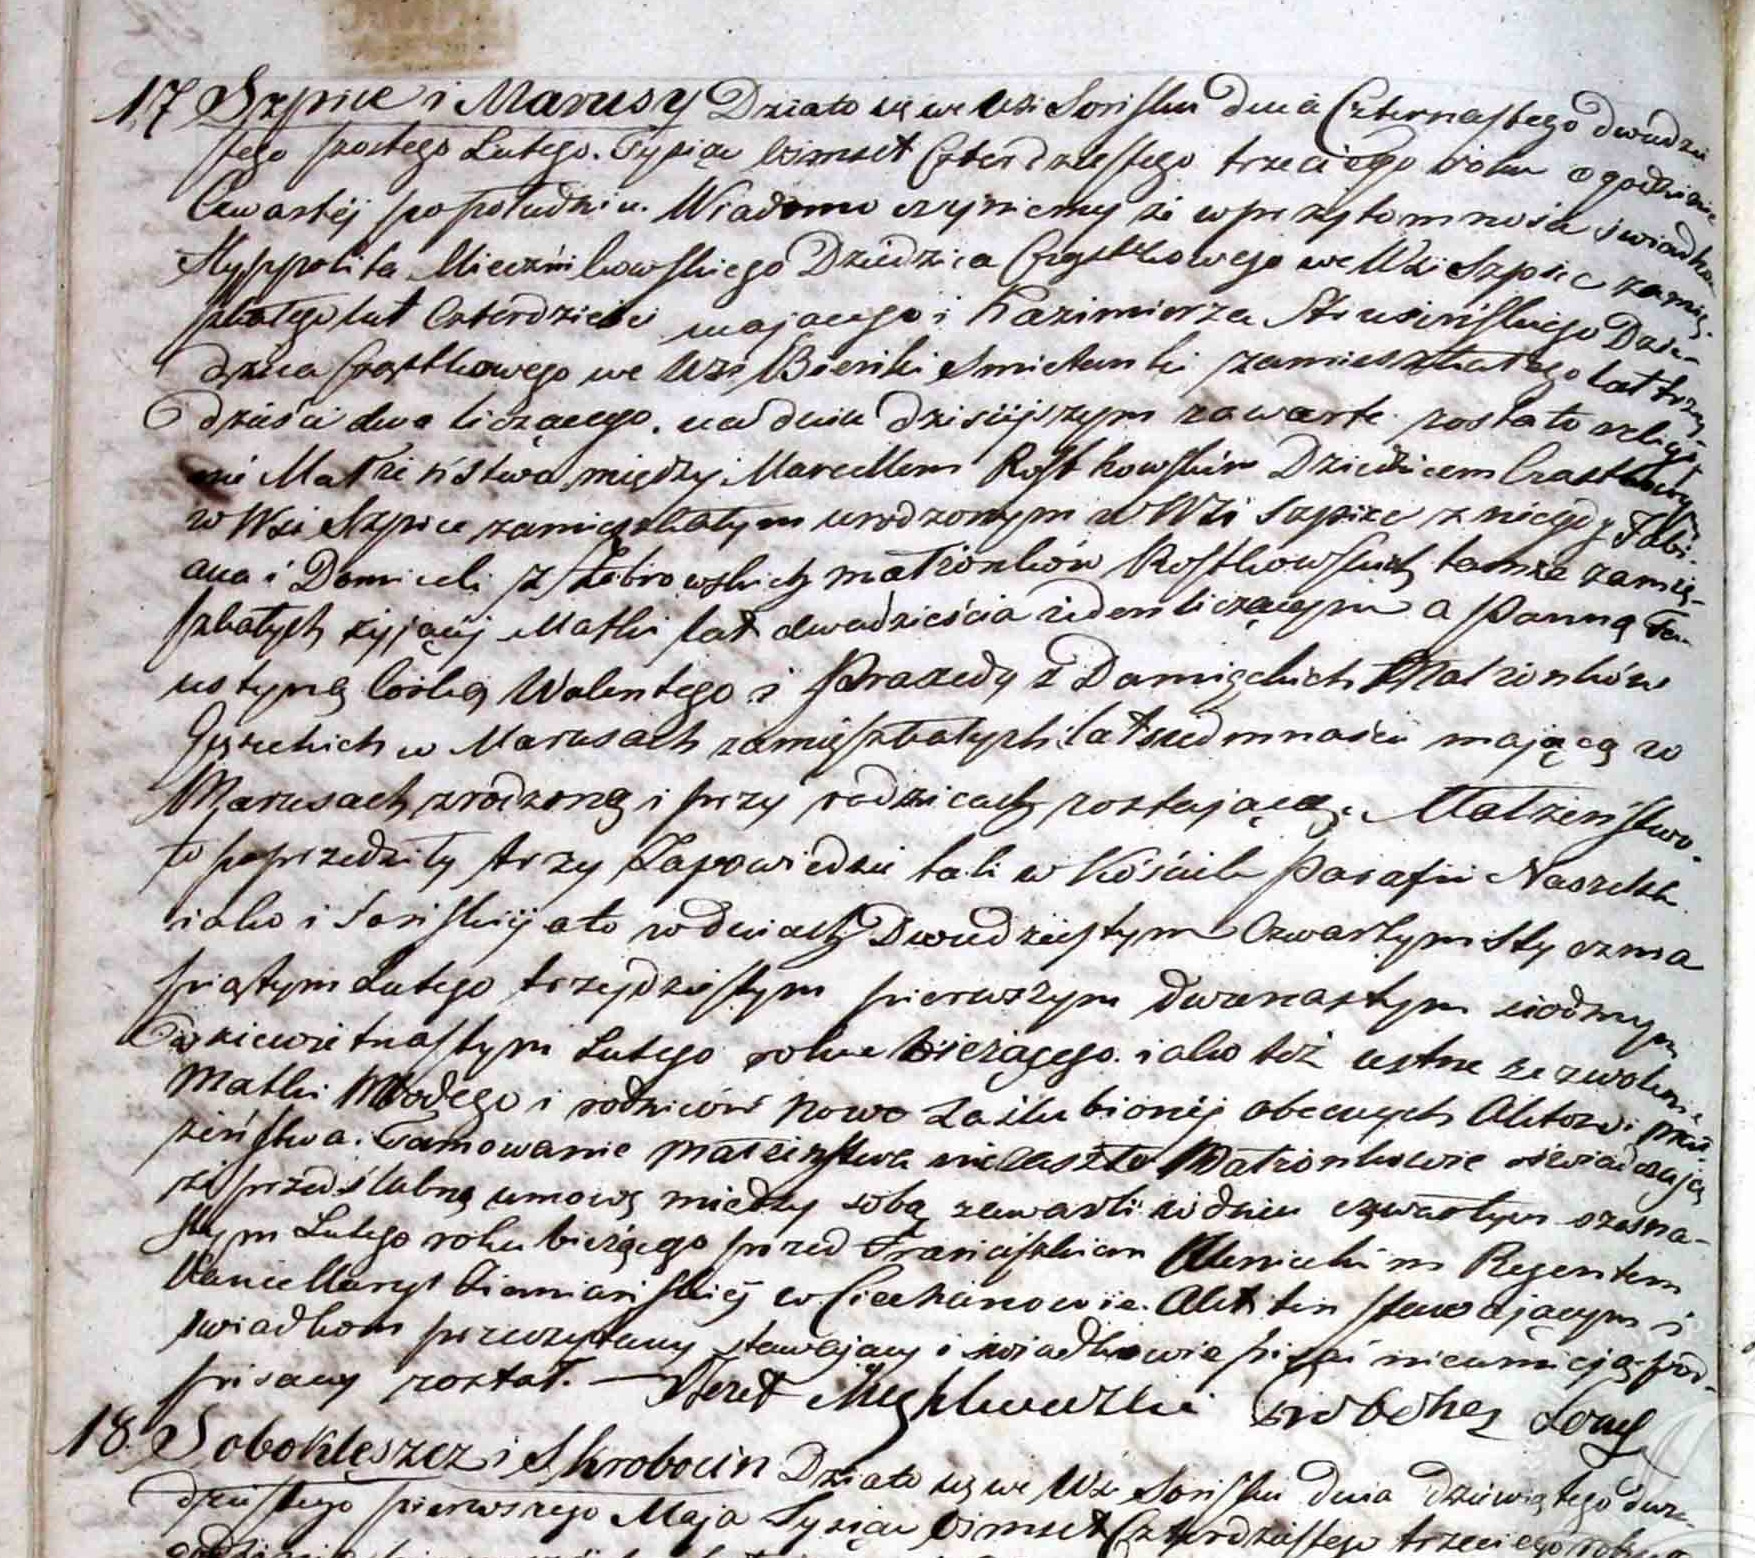 17 Szpice i Marusy Działo się we Wsi Sońsku dnia Czternastego dwudzie
stego szostego Lutego. Tysiąc osmset Czterdziestego trzeciego roku o godzinie
Czwartéj po południu. Wiadomo czyniemy że w przytomności swiadków
Hyppolita Miecznikowskiego Dziedzica Cząstkowego we Wsi Szpice zamię-
szkałego lat Czterdzieści mającego i Kazimierza Strusińskiego Dzie-
dzica Cząstkowego we Wsi Bieńki Smietanki zamieszkałego lat trzy-
dzieści dwa liczącego. na dniu dzisiejszym zawarte zostało religij
nie Małżeństwo między Marcellem Rostkowskim Dziedzicem Cząstkowym
w Wsi Szpice zamięszkałym urodzonym w Wsi Szpice z niegdy Fabi-
ana i Domiceli z Żebrowskich małżonków Rostkowskich tamże zamię-
szkałych żyjącéj Matki lat dwadzieścia ieden liczącym a Panną Fa-
ustyną Córką Walentego i Praxedy z Damięckich Małżonków
Gąseckich w Marusach zamięszkałych lat siedmnaście mającą w
Marusach zrodzoną i przy rodzicach zostającą. Małżeństwo
to poprzedziły trzy Zapowiedzie tak w Kościele Parafii
iako i Sońskiéj a to w dniach Dwudziestym Czwartym Stycznia
piątym Lutego trzydziestym pierwszym dwunastym siodmym
Dziewietnastym Lutego roku bieżącego. iako też ustne zezwolenie
Matki Młodego i rodziców Nowo Zaślubionéj obecnych Aktowi Mał
żeństwa. Tamowanie małżeństwa nie zaszło Małżonkowie oświadczają
że przedślubną umowę między sobą zawarli w dniu czwartym szesna-
stym Lutego roku bieżącego przed Franciszkiem Regentem
Kancellaryi Ziemiańskiéj w Ciechanowie. Akt ten stawającym i
swiadkom przeczytany stawający i swiadkowie pisać nieumieją pod-
pisany został. —
18. Sobokleszcz i Skrobocin Działo się we Wsi Sońsku dnia dziewiątego dwu-
dziestego pierwszego Maja Tysiąc osmset Czterdziestego trzeciego roku